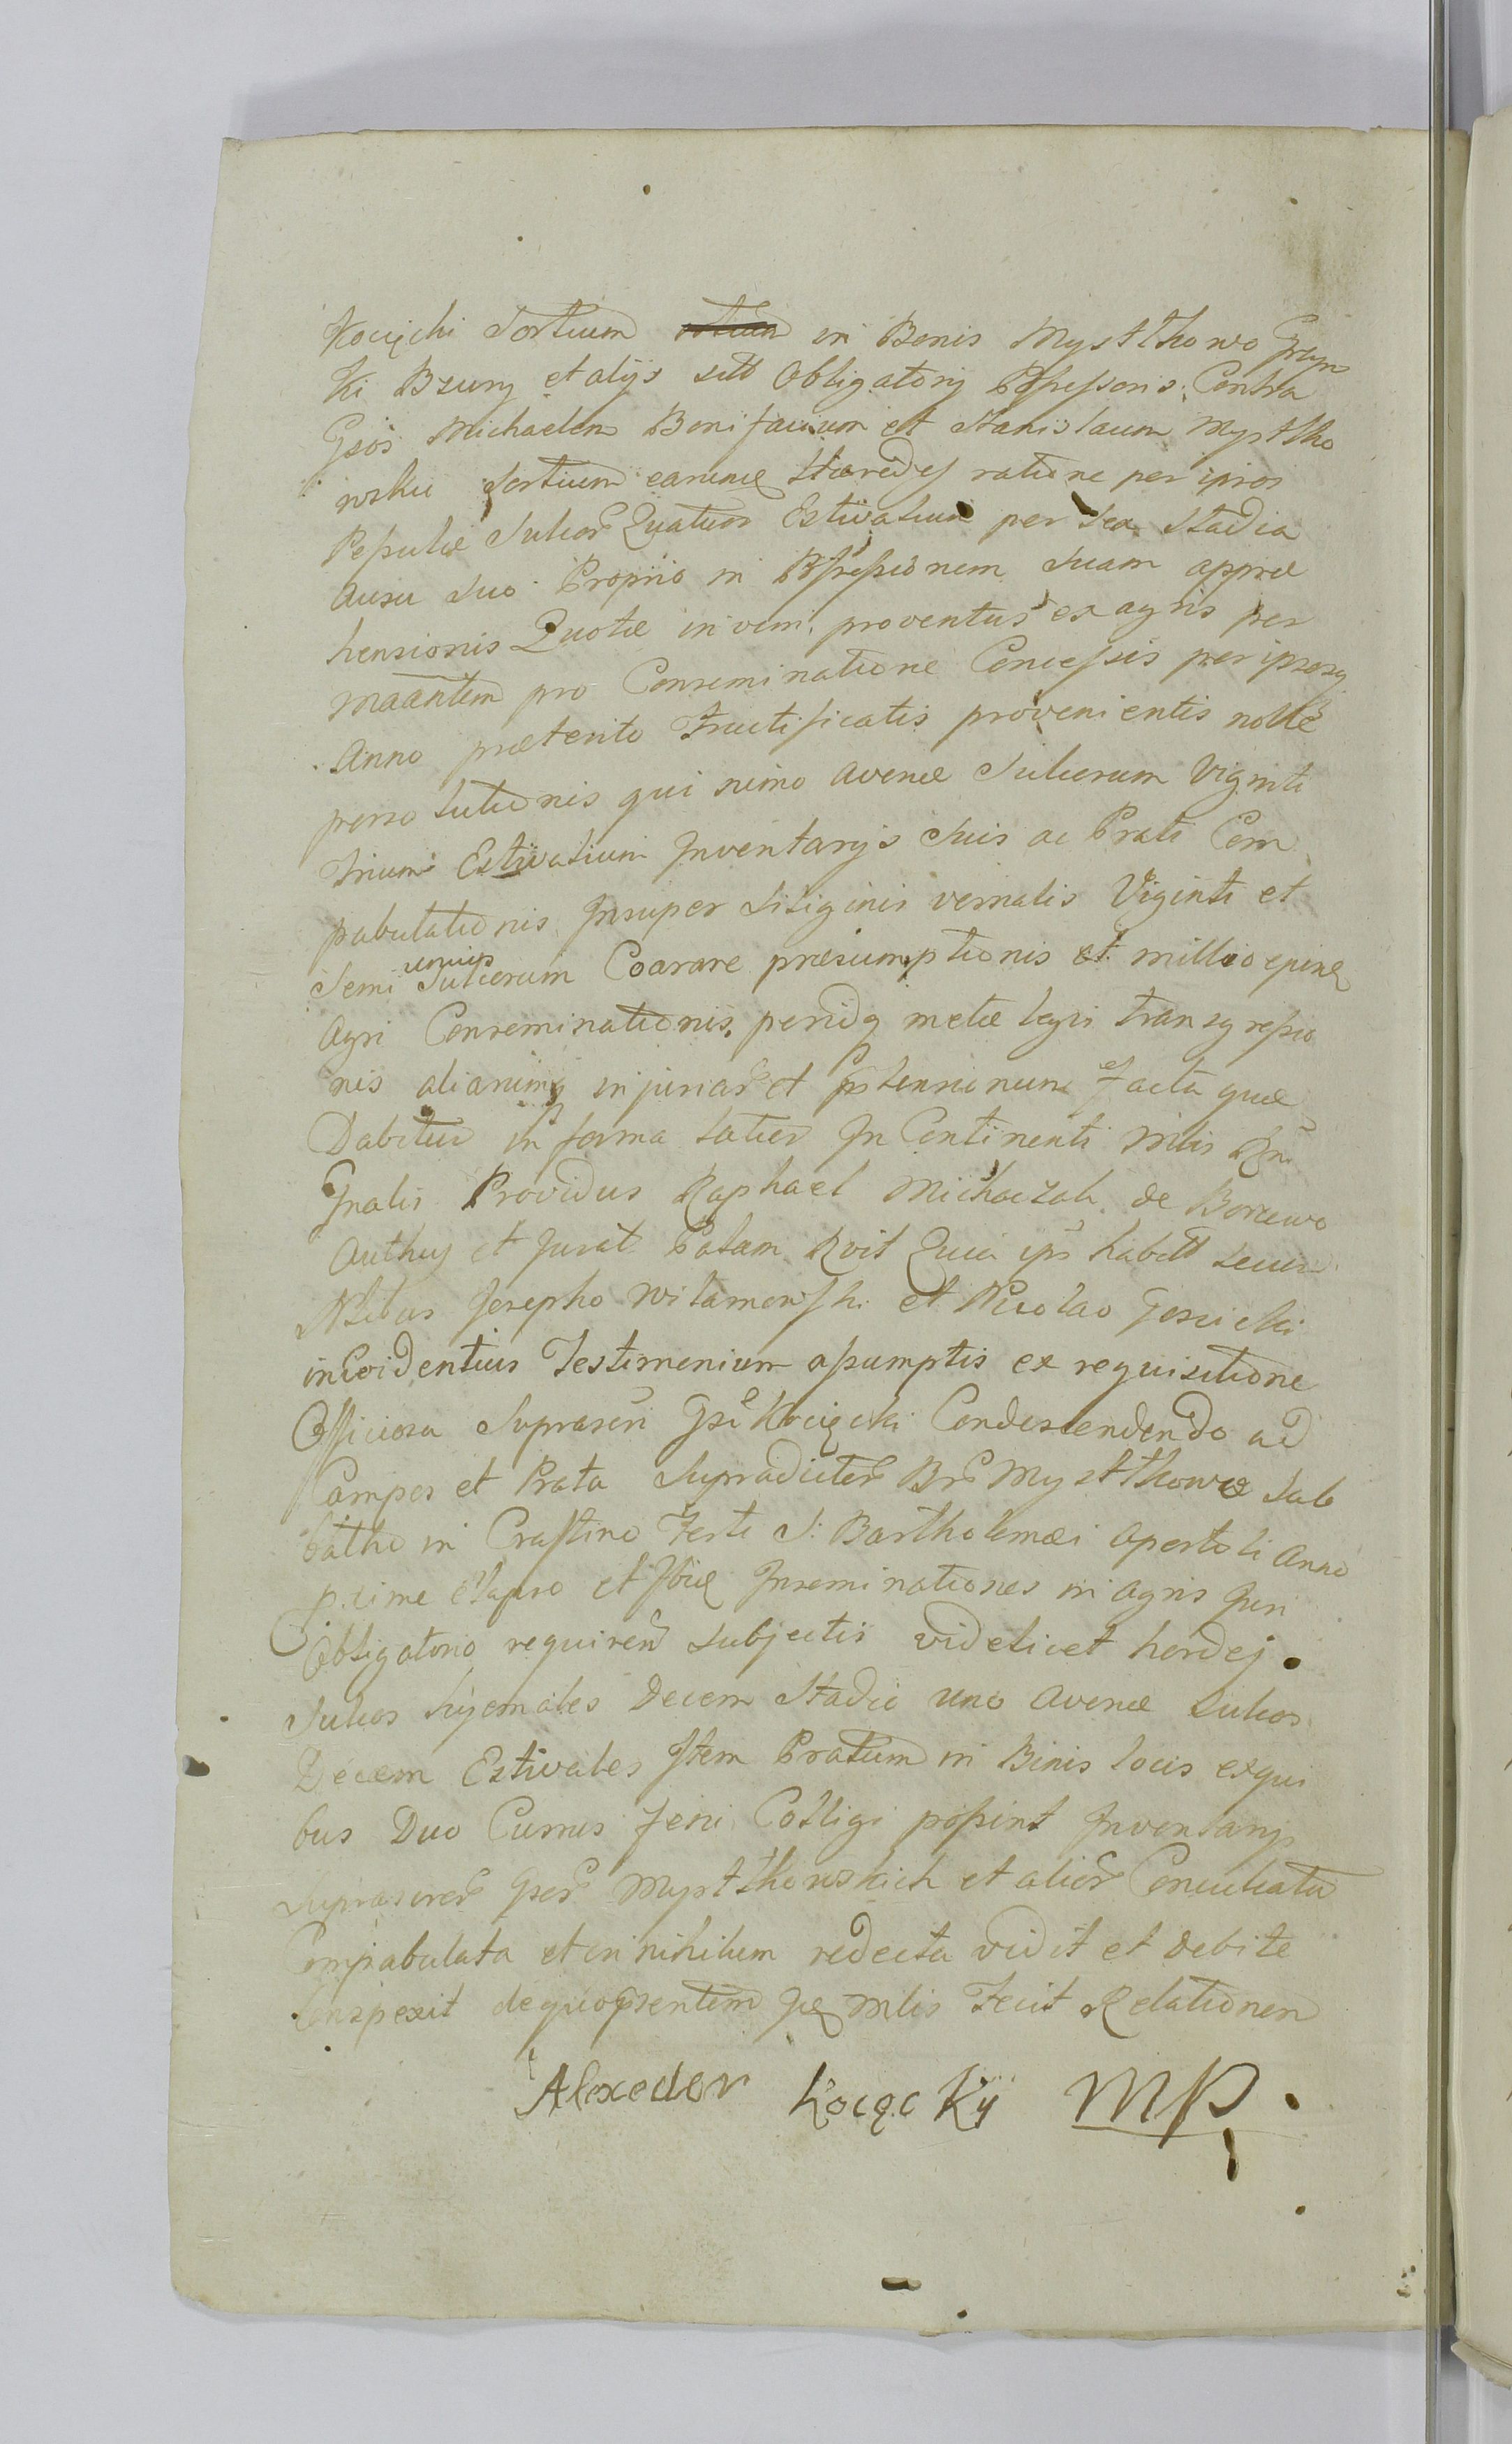 Kocięcki Sortium in Bonis Mysttkowo Grzym
ki Bzury et alijs sitt Obligatorij Possessoris, Contra
Gsos Michaelem Bonifacium et Stanislaum Mysttko
wskie Sortium earumq Hæredes ratione per ipsos
Pepulæ Sulcor Quatuor Estivalium per sex Stadia
Ausu Suo Proprio in Possessionem Suam appræ
hensionis Quotæ in vim proventus ex agris per
maantem pro Conseminatione Concessis per ipsosq
Anno præterito Fructificatis provenientis nollæ
persolutionis qui nimo avenæ Sulcorum Viginti
trium Estivalium Inventarijs Suis ac Prati Com
pabulationis Insuper Siliginis vernalis Viginti et
Semi unius Sulcorum Coarare præsumptionis et
Agri Conseminationis, metæ legis transgressio
nis aliarumq injuriar et prtensionum facta quæ
Dabitur in forma latior In Continenti Mlis Rgni
Gnalis Providus Raphael Michaczak de Borzewo
Authus et Jurat Palam Rvit Quia ips habitt secum
Nblibus Josepho Wilamowski et Nicolao Goscicki
in Evidentius Testimonium assumptis ex requisitione
Officiosa Suprascri Gsi Kocięcki Condescendendo ad
Campos et Prata Supradictor Bor Mysttkowo Sab
batho in Crastino Festi S: Bartholomæi Apostoli Anno
pxime elapso et Ibiq Inseminationes in agris Juri
Obligatorio requiren subjectis videlicet hordej
Sulcos hyemales Decem Stadio uno Avenæ Sulcos
Decem Estivales Item Pratum in Binis locis ex qui
bus Duo Currus feni Colligi possint Inventarijs
suprascror Gsor Mysttkowskich et alior Conculcata
Compabulata et in nihilum redacta vidit et debite
Conspexit de quo prsentem Idq Mlis Fecit Relationem
Alexeder Kocęcky MP